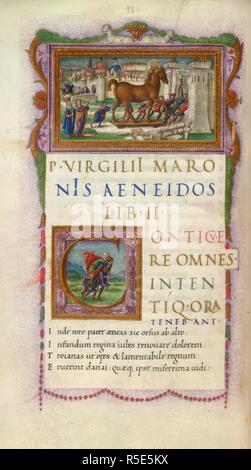 P·VIRGILII MARO
NIS AENEIDOS
LIB·II·
CONTICVE
RE OMNES·
INTEN
TIQ·ORA
TENEBANT
I nde toro pater æneas sic orsus ab alto.
I nfandum regina iubes renouare dolorem
T roianas ut opes & lamentabile regnum
E ruerint danai: quæq; ipse miserrima uidi: